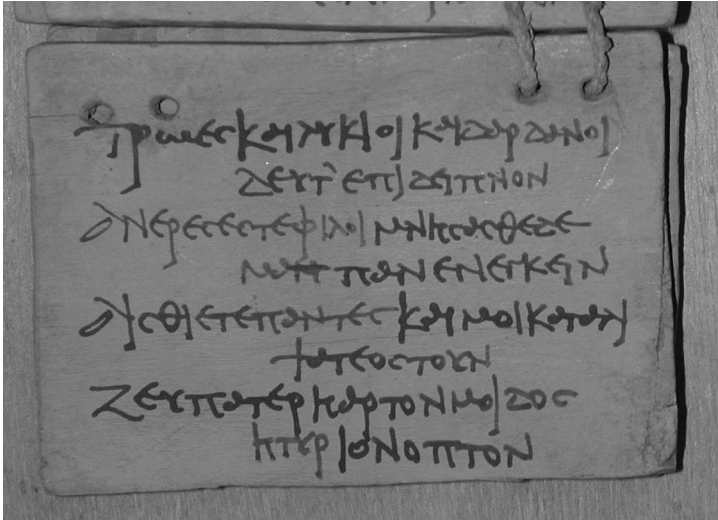 Τρωες και λυκιοι και δαρδανοι
δευτ᾽ επι δειπνον
ανερες εστε φιλοι μνησασθε δε
μαππαν ενεικειν
αισθιετε παντες και μοι καταλι
ψατε οστουν
Ζευ πατερ η αρτον μοι δος
η τυριον οπτον